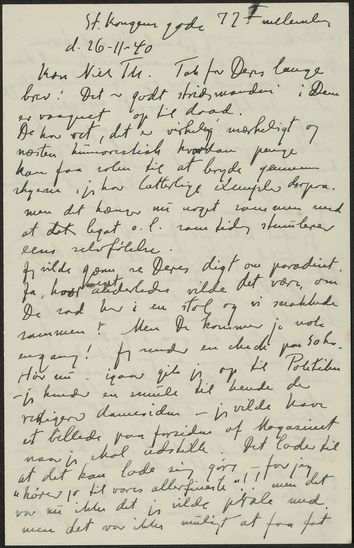 St. Kongens gade 72
d. 26-11-40
Kære Niels Th. Tak for Deres lange
brev! Det er godt stridsmanden i Dem
er vaagnet op til daad.
De har ret, det er virkelig mærkeligt og
næsten humoristisk hvordan penge
kan faa solen til at bryde gennem
skyerne, jeg har latterlige exempler derpaa.
men det hænger nu noget sammen med
at det legat o.l. samtidig stimulerer
eens selvfølelse.
Jeg vilde gærne se Deres digt om paradiset.
Ja, hvor meget anderledes vilde det være, om
De sad her i en stol og vi snakkede
sammen! Men De kommer jo nok
engang! Jeg sender en check paa
Hør nu - igaar gik jeg op til Politiken
- jeg kender en smule til hende der
redigerer damesiden - jeg vilde have
et billede paa forsiden af Magasinet
naar jeg skal udstille. Det lader til
at det kan lade sig gøre - for jeg
"hører jo til vores allerfineste"!! men det
var nu ikke det jeg vilde prale med.
men det var ikke muligt at faa fat